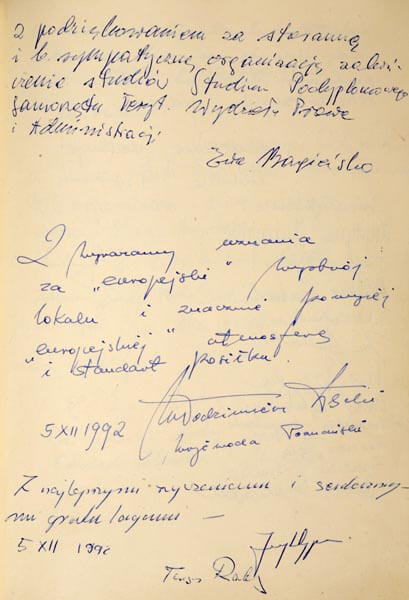 z podziękowaniem za staranną
i b. sympatyczną organizację zakoń-
czenia studiów Studium Podyplomowego
Samorządu Teryt. Wydziału Prawa
i Administracji
Ewa
Z wyrazami uznania
za "europejski" wystrój
lokalu i znacznie powyżej
"europejskiej" atmosferę
i standart posiłku.
5 XII 1992 Włodzimierz
Wojewoda Poznański
Z najlepszymi życzeniami i serdeczny-
mi gratulacjami —
5 XII 1992